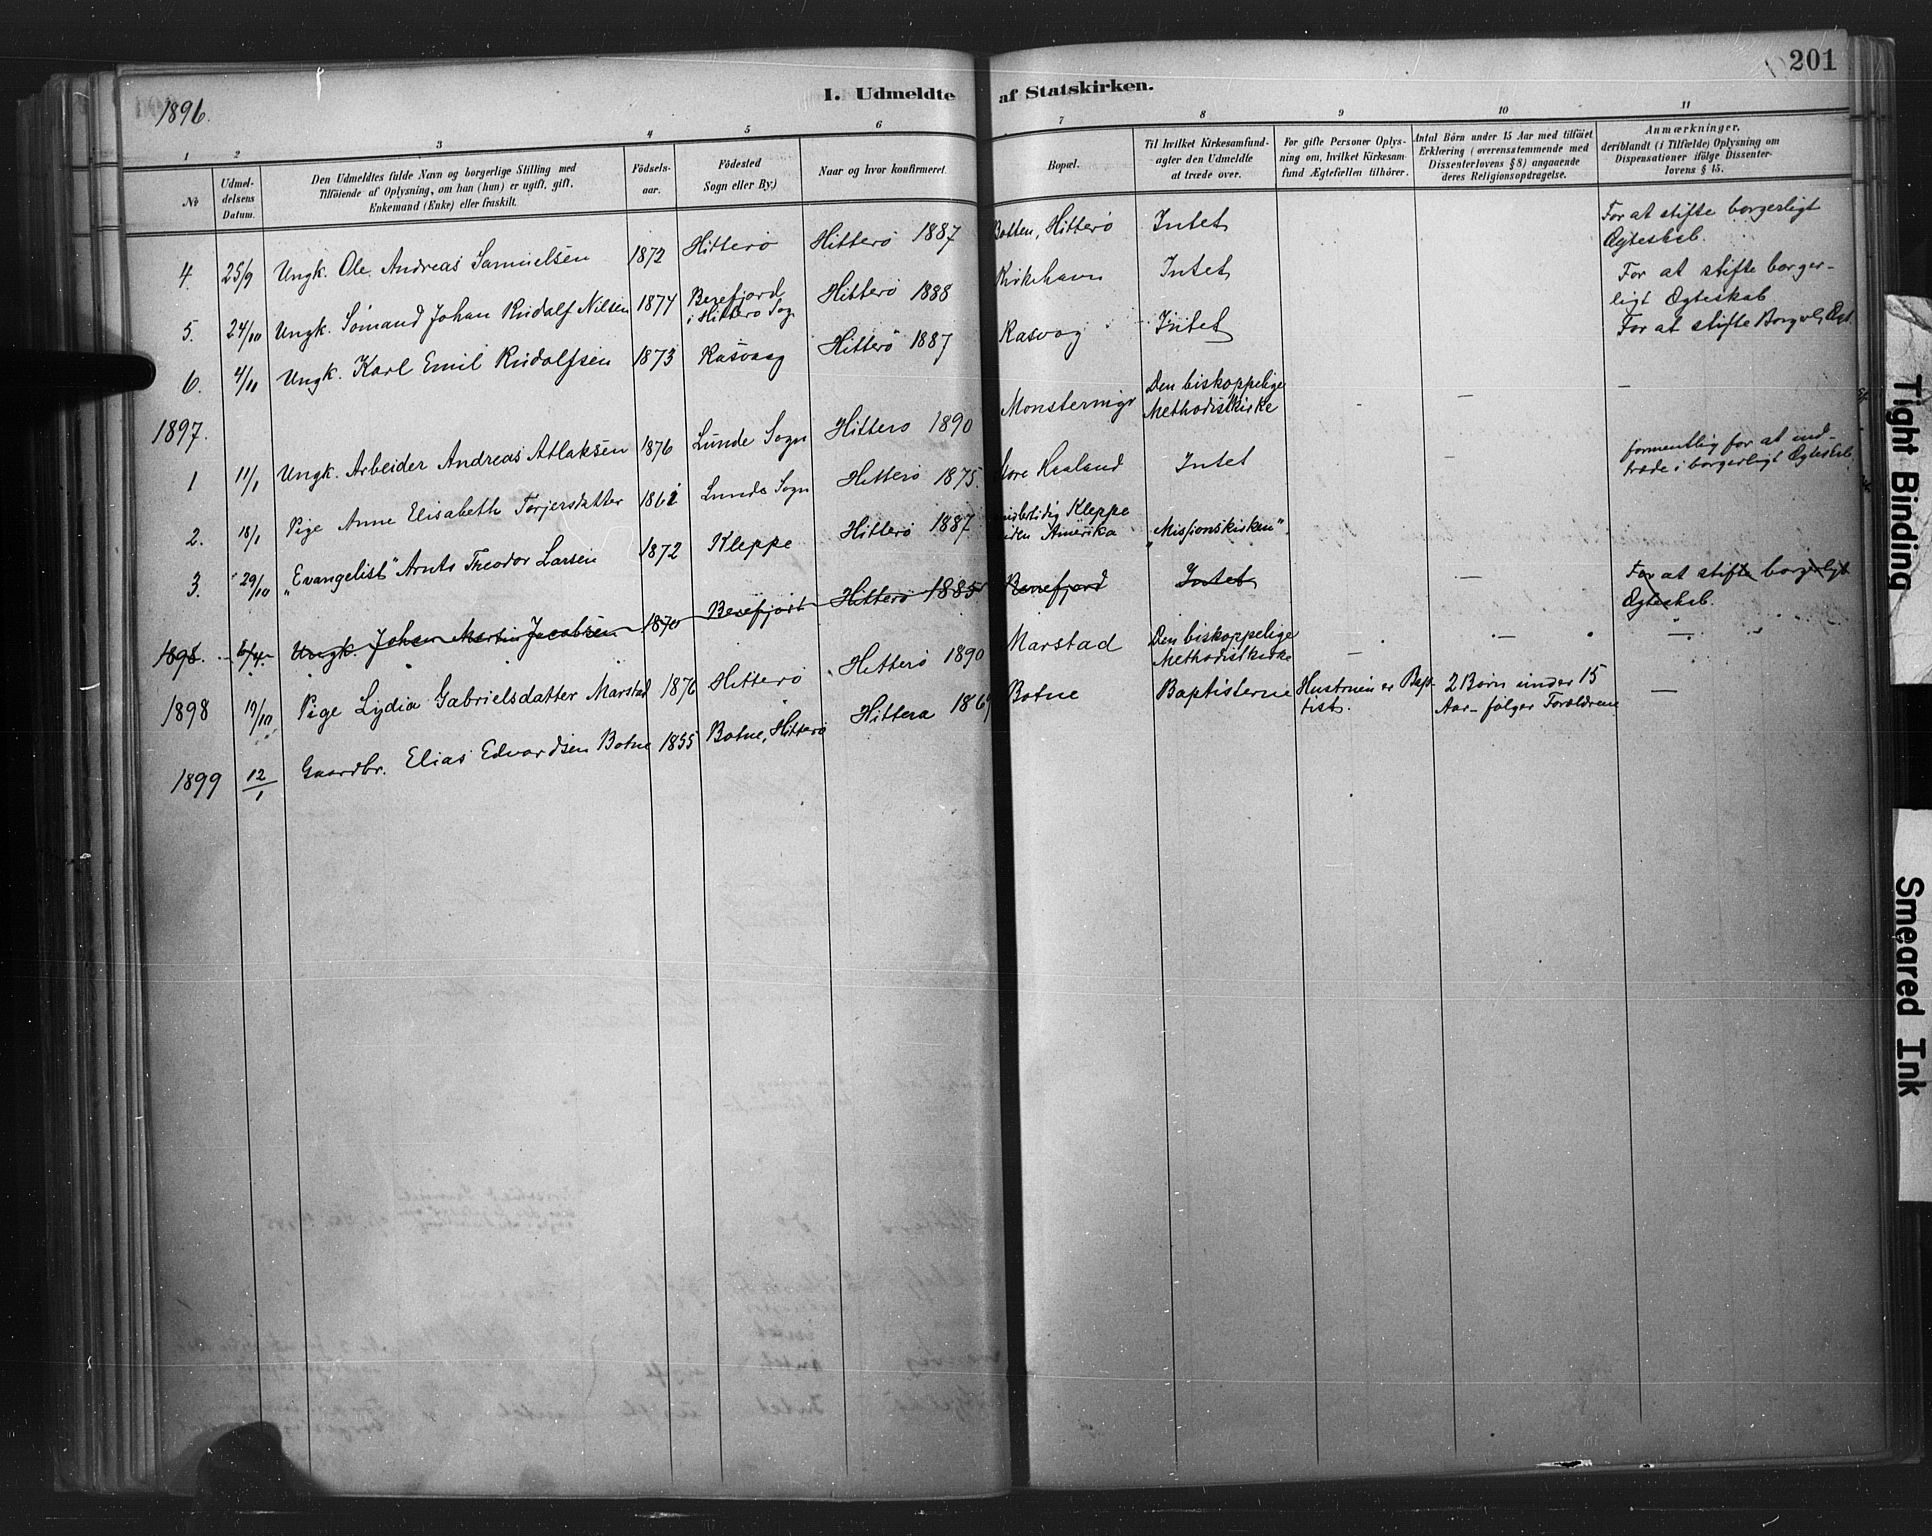 201
1896.
I. Udmeldte af Statskirken.
1 2 3 4 5 6 7 8 9 10 11
No
Udmel-
delsens
Datum.
Den Udmeldtes fulde Navn og borgerlige Stilling med
Tilføiende af Oplysning, om han (hun) er ugift, gift,
Enkemand (Enke) eller fraskilt.
Fødsels-
aar.
Fødested
Sogn eller By.)
Naar og hvor konfirmeret.
Bopæl.
Til hvilket Kirkesamfund-
agter den Udmeldte
at træde over.
For gifte Personer Oplys-
ning om, hvilket Kirkesam-
fund Ægtefællen tilhører.
Antal Børn under 15 Aar med tilføiet
Erklæring (overensstemmende med
Dissenterlovens § 8) angaaende
deres Religionsopdragelse.
Anmærkninger,
deriblandt (i Tilfælde) Oplysning om
Dispensationer ifølge Dissenter-
lovens § 15.
4. 25/9 Ungk. Ole Andreas Samuelsen 1872 Hitterø Hitterø 1887 Botten, Hitterø Intet For at stifte borgerligt
Ægteskab.
5. 24/10 Ungk. Sømand Johan Rudolf Nilsen 1874 Berefjord
i Hitterø Sogn Hitterø 1888 Kirkehavn Intet For at stifte borger-
ligt Ægteskab
6. 4/11 Ungk. Karl Emil Rudolfsen 1873 Rasvaag Hitterø 1887 Rasvog Intet For at stifte Borgerl. Ægt.
1897.
1 11/1 Ungk. Arbeider Andreas Atlaksen 1876 Lunde Sogn Hitterø 1890 Den biskoppelige
Methodistkirke - - -
2. 18/1 Pige Anne Elisabeth Torjersdatter Lunde Sogn Hitterø 1875. Store Haaland Intet - formentlig for at ind-
træde i borgerligt Ægteskab.
3. 29/10 "Evangelist" Arnts Theodor Larsen 1872 Kleppe Hitterø 1887. Kleppe
siden Amerika "Missionskirken".
1898. 6/4 Ungk. Johan Martin Jacobsen 1870 Berefjord Hitterø 1885 Berrefjord Intet - For at stifte borgerligt
Ægteskab.
1898 19/10 Pige Lydia Gabrielsdatter Marstad 1876 Hitterø Hitterø 1890 Marstad Den biskoppelige
Methodistkirke - - -
1899 12/1 Gaardbr. Elias Edvardsen Botne 1855 Botne, Hitterø Hitterø 1869 Botne Baptisterne Hustruen er Bap-
tist. 2 Børn under 15
Aar - følger Forældrene -
Tight Binding
Smeared Ink